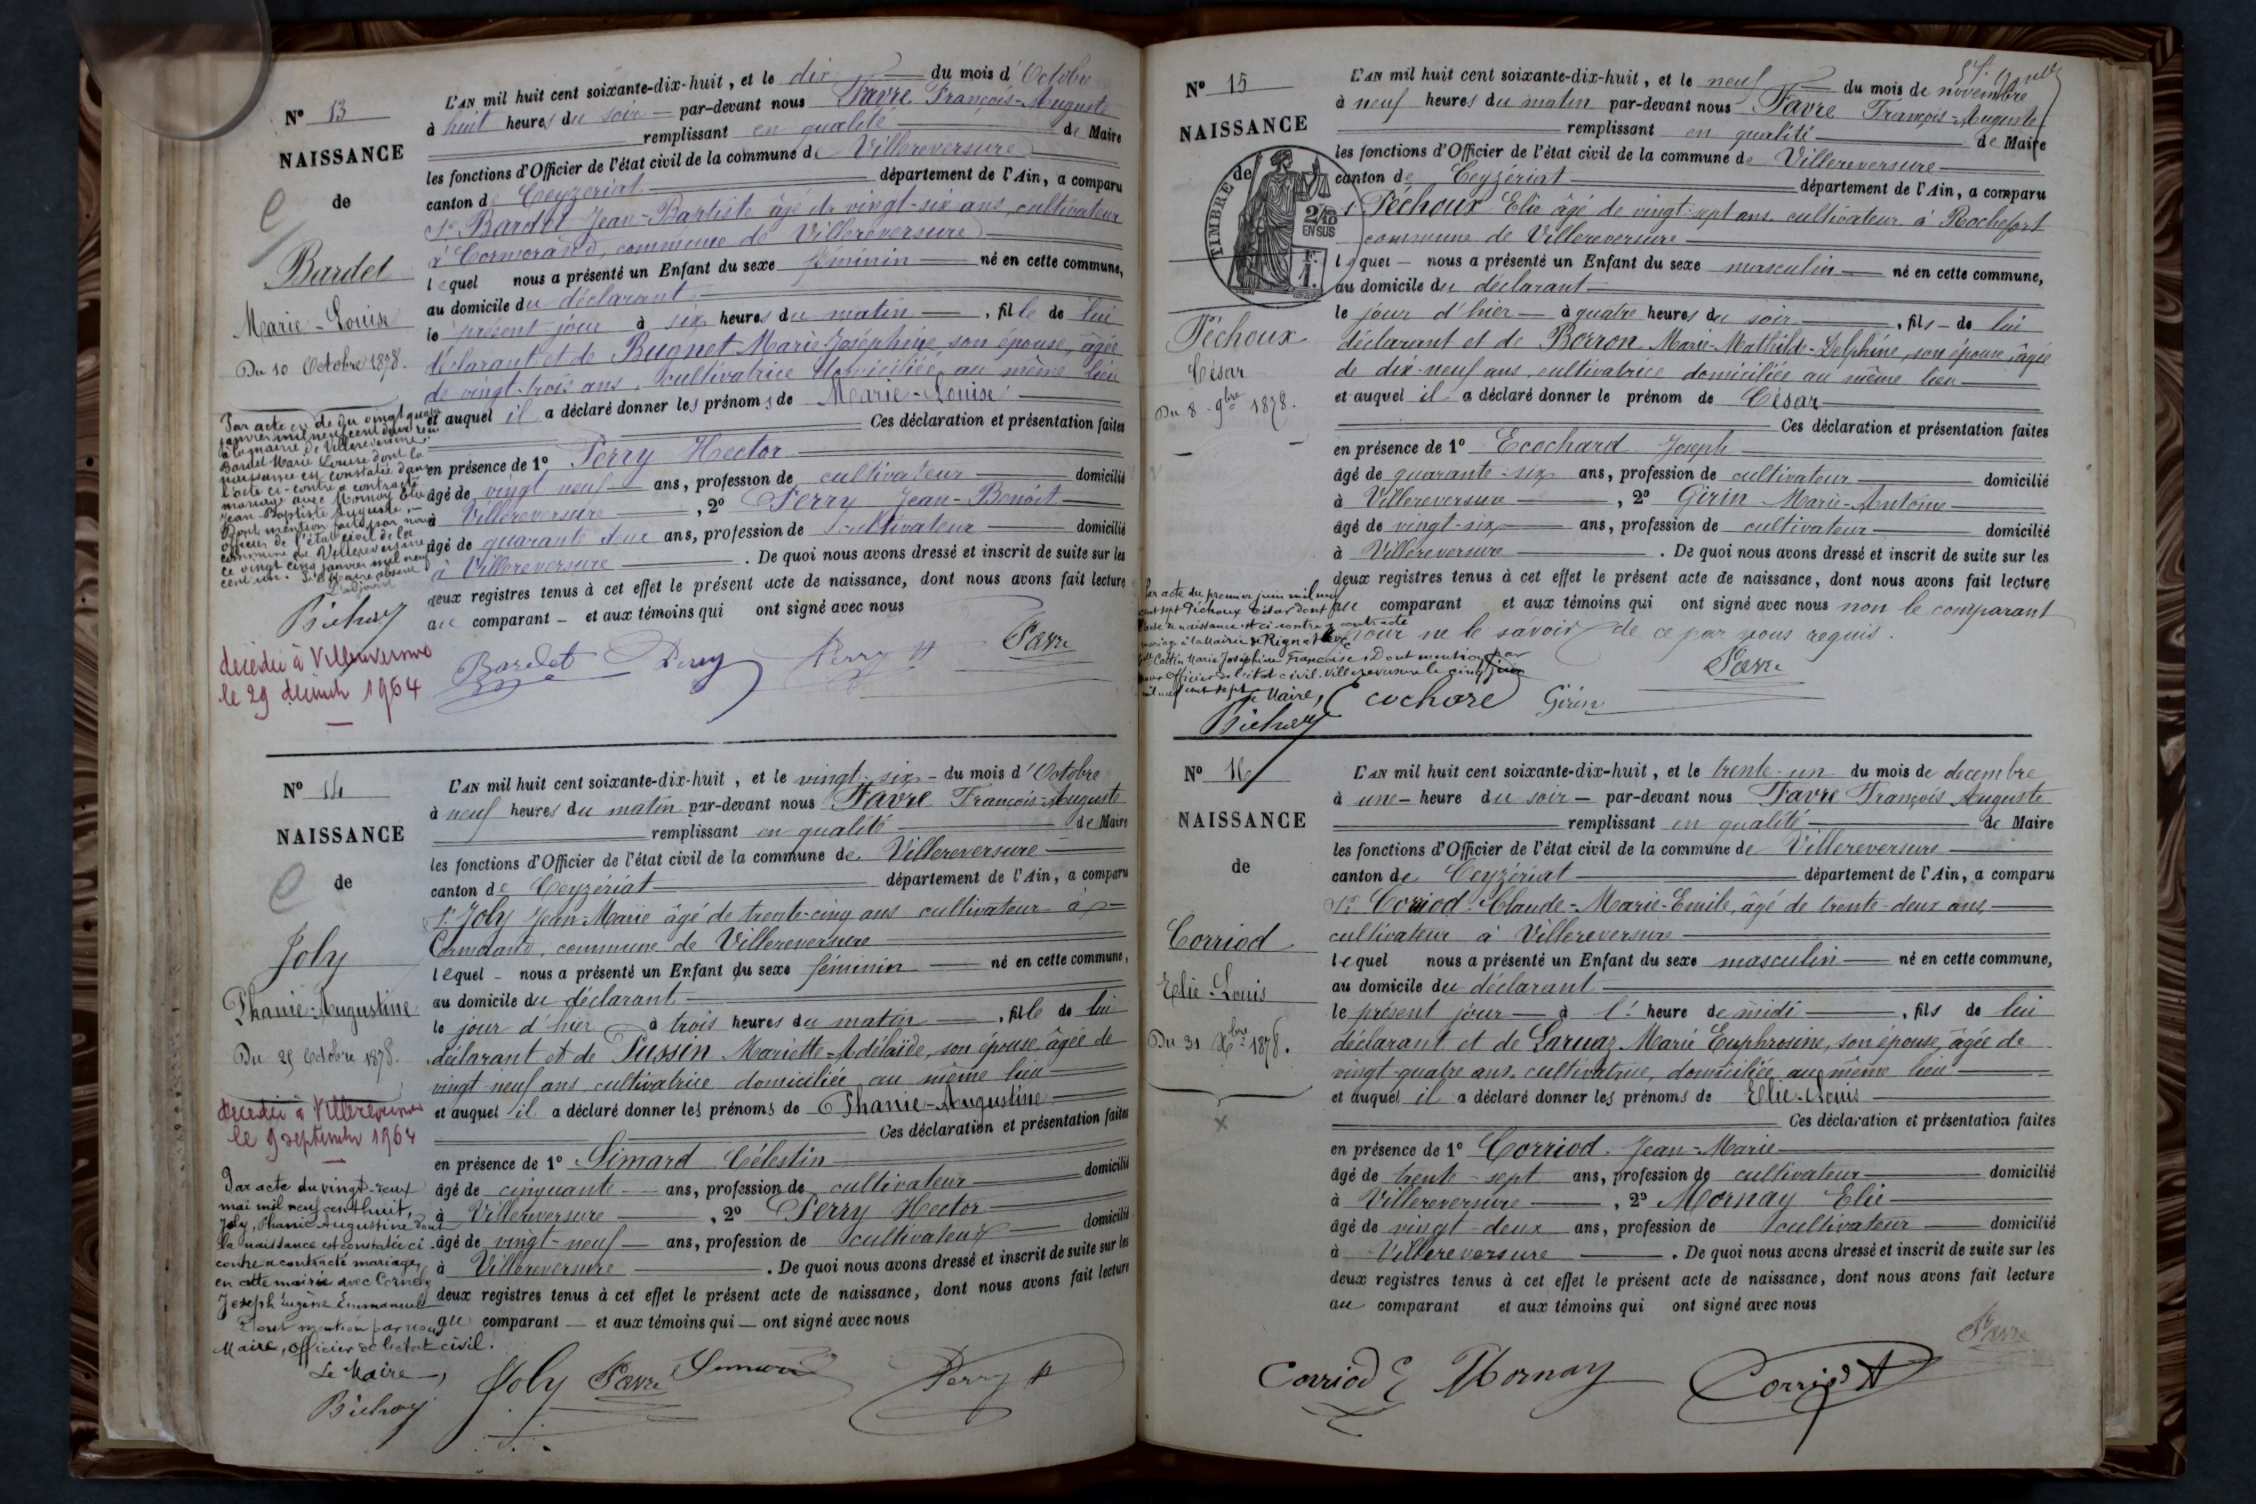 N° 13
NAISSANCE
de
Bardet
Marie-Louise
Du 10 Octobre 1878.
Par acte en date du vingt quatre
janvier mil neuf cent
à la mairie de Villereversure
Bardet Marie Louise dont la
naissance est constatée dans
l'acte ci-contre a contracté
mariage avec Mornay Elie
Jean-Baptiste Auguste.
Dont mention faite par nous
officier de l'état civil de la
commune de Villereversure
ce vingt cinq janvier mil neuf
cent un. Le Maire absent
L'adjoint
Pichoy
décédée à Villereversure
le 29 décemb 1964
L'AN mil huit cent soixante-dix-huit, et le dix du mois d'Octobre
à huit heures du soir par-devant nous Favre François-Auguste
remplissant en qualité de Maire
les fonctions d'Officier de l'état civil de la commune de Villereversure
canton de Ceyzériat département de l'Ain, a comparu
Sr Bardet Jean-Baptiste âgé de vingt-six ans, cultivateur
à Cormorand, commune de Villereversure
lequel nous a présenté un Enfant du sexe féminin né en cette commune,
au domicile du déclarant
le présent jour à six heures du matin, fille de lui
déclarant et de Bugnet Marie-Joséphine, son épouse, âgée
de vingt-trois ans, cultivatrice domiciliée au même lieu
et auquel il a déclaré donner les prénoms de Marie-Louise
Ces déclaration et présentation faites
en présence de 1° Perry Hector
âgé de vingt neuf ans, profession de cultivateur domicilié
à Villereversure, 2° Perry Jean-Benoît
âgé de quarante ans, profession de cultivateur domicilié
à Villereversure. De quoi nous avons dressé et inscrit de suite sur les
deux registres tenus à cet effet le présent acte de naissance, dont nous avons fait lecture
au comparant et aux témoins qui ont signé avec nous
Bardet Perry Perry H Favre
N° 14
NAISSANCE
de
Joly
Phanie-Augustine
Du 25 Octobre 1878.
décédée à Villereversure
le 9 septembre 1964
Par acte du vingt-deux
mai mil neuf cent huit,
Joly, Phanie Augustine dont
la naissance est constatée ci
contre a contracté mariage
en cette mairie avec Cornely
Joseph Eugène Emmanuel
Dont mention par nous
Maire, officier de l'état civil.
Le Maire,
Pichoy
L'AN mil huit cent soixante-dix-huit, et le vingt-six du mois d'Octobre
à neuf heures du matin par-devant nous Favre François-Auguste
remplissant en qualité de Maire
les fonctions d'Officier de l'état civil de la commune de Villereversure
canton de Ceyzériat département de l'Ain, a comparu
Sr Joly Jean-Marie âgé de trente-cinq ans cultivateur à
Cormorand, commune de Villereversure
lequel nous a présenté un Enfant du sexe féminin né en cette commune,
au domicile du déclarant
le jour d'hier à trois heures du matin, fille de lui
déclarant et de Pussin Mariette-Adélaïde, son épouse, âgée de
vingt-neuf ans cultivatrice domiciliée au même lieu
et auquel il a déclaré donner les prénoms de Phanie-Augustine
Ces déclaration et présentation faites
en présence de 1° Simard Célestin
âgé de cinquante ans, profession de cultivateur domicilié
à Villereversure, 2° Perry Hector
âgé de vingt-neuf ans, profession de cultivateur domicilié
à Villereversure. De quoi nous avons dressé et inscrit de suite sur les
deux registres tenus à cet effet le présent acte de naissance, dont nous avons fait lecture
au comparant et aux témoins qui ont signé avec nous
Joly Favre Simard Perry H
N° 15
NAISSANCE
de
TIMBRE
2/10 EN SUS
F. 1.
Péchoux
César
Du 8 9bre 1878.
Par acte du premier juin mil neuf
cent sept Péchoux César dont
l'acte de naissance est ci-contre a contracté
mariage à la Mairie de Rignat avec
Cottin Marie Joséphine Françoise. Dont mention par
nous Officier de l'état civil. Villereversure le cinq juin
mil neuf cent sept
Le Maire,
Pichoy
L'AN mil huit cent soixante-dix-huit, et le neuf du mois de novembre
à neuf heures du matin par-devant nous Favre François-Auguste
remplissant en qualité de Maire
les fonctions d'Officier de l'état civil de la commune de Villereversure
canton de Ceyzériat département de l'Ain, a comparu
Sr Péchoux Elie âgé de vingt-sept ans, cultivateur à Rochefort
commune de Villereversure
lequel nous a présenté un Enfant du sexe masculin né en cette commune,
au domicile du déclarant
le jour d'hier à quatre heures du soir, fils de lui
déclarant et de Borron Marie-Mathilde-Delphine, son épouse, âgée
de dix-neuf ans, cultivatrice domiciliée au même lieu
et auquel il a déclaré donner le prénom de César
Ces déclaration et présentation faites
en présence de 1° Ecochard Joseph
âgé de quarante-six ans, profession de cultivateur domicilié
à Villereversure, 2° Girin Marie-Antoine
âgé de vingt-six ans, profession de cultivateur domicilié
à Villereversure. De quoi nous avons dressé et inscrit de suite sur les
deux registres tenus à cet effet le présent acte de naissance, dont nous avons fait lecture
au comparant et aux témoins qui ont signé avec nous non le comparant
pour ne le savoir de ce par nous requis.
Favre
Ecochard Girin
N° 16
NAISSANCE
de
Corriod
Elie-Louis
Du 31 Xbre 1878.
L'AN mil huit cent soixante-dix-huit, et le trente-un du mois de decembre
à une heure du soir par-devant nous Favre François Auguste
remplissant en qualité de Maire
les fonctions d'Officier de l'état civil de la commune de Villereversure
canton de Ceyzériat département de l'Ain, a comparu
Sr Corriod Claude-Marie-Emile, âgé de trente-deux ans,
cultivateur à Villereversure
lequel nous a présenté un Enfant du sexe masculin né en cette commune,
au domicile du déclarant
le présent jour à l' heure de midi, fils de lui
déclarant et de Laruaz Marie Euphrosine, son épouse, âgée de
vingt-quatre ans, cultivatrice, domiciliée au même lieu
et auquel il a déclaré donner les prénoms de Elie-Louis
Ces déclaration et présentation faites
en présence de 1° Corriod Jean-Marie
âgé de trente-sept ans, profession de cultivateur domicilié
à Villereversure, 2° Mornay Elie
âgé de vingt-deux ans, profession de cultivateur domicilié
à Villereversure. De quoi nous avons dressé et inscrit de suite sur les
deux registres tenus à cet effet le présent acte de naissance, dont nous avons fait lecture
au comparant et aux témoins qui ont signé avec nous
Favre
Corriod E Mornay Corriod